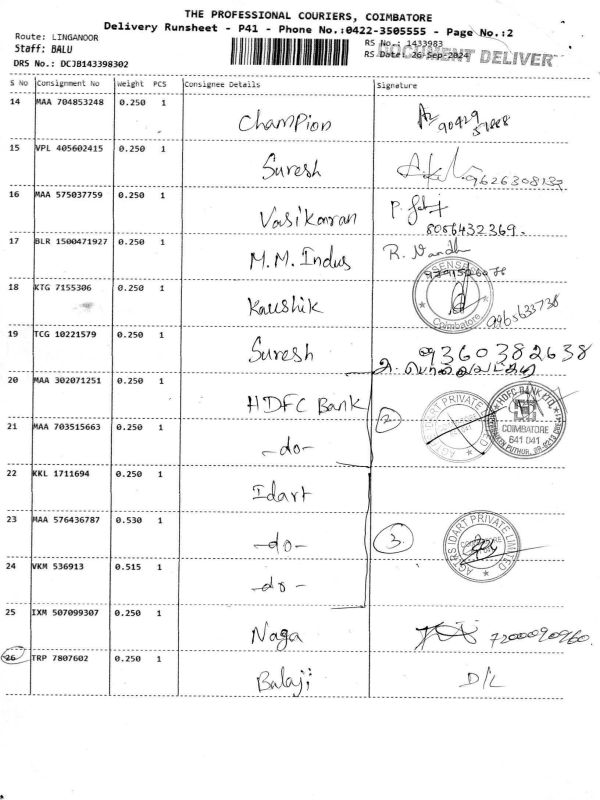 THE PROFESSIONAL COURIERS, COIMBATORE
Delivery Runsheet - P41 - Phone No.:0422-3505555 - Page No.:2
Route: LINGANOOR
Staff: BALU
DRS No.: DCJB143398302
RS No.: 1433983
RS.Date: 26-Sep-2024
DOCUMENT DELIVERY
S No Consignment No Weight PCS Consignee Details Signature
14 MAA 704853248 0.250 1 Champion 90429
15 VPL 405602415 0.250 1 Suresh
16 MAA 575037759 0.250 1 Vasikaran P.
8056432369.
17 BLR 1500471927 0.250 1 M.M. Indus R. Nandh
18 KTG 7155306 0.250 1 Kaushik
SENSE
Coimbatore
19 TCG 10221579 0.250 1 Suresh 09360382638
20 MAA 302071251 0.250 1 HDFC Bank
21 MAA 703515663 0.250 1 -do- 2
HDFC BANK LTD
COIMBATORE
641 041
22 KKL 1711694 0.250 1 Idart
23 MAA 576436787 0.530 1 -do- 3
IDART PRIVATE LIMITED
24 VKM 536913 0.515 1 -do-
25 IXM 507099307 0.250 1 Naga 7200090960.
26 TRP 7807602 0.250 1 Balaji D/L